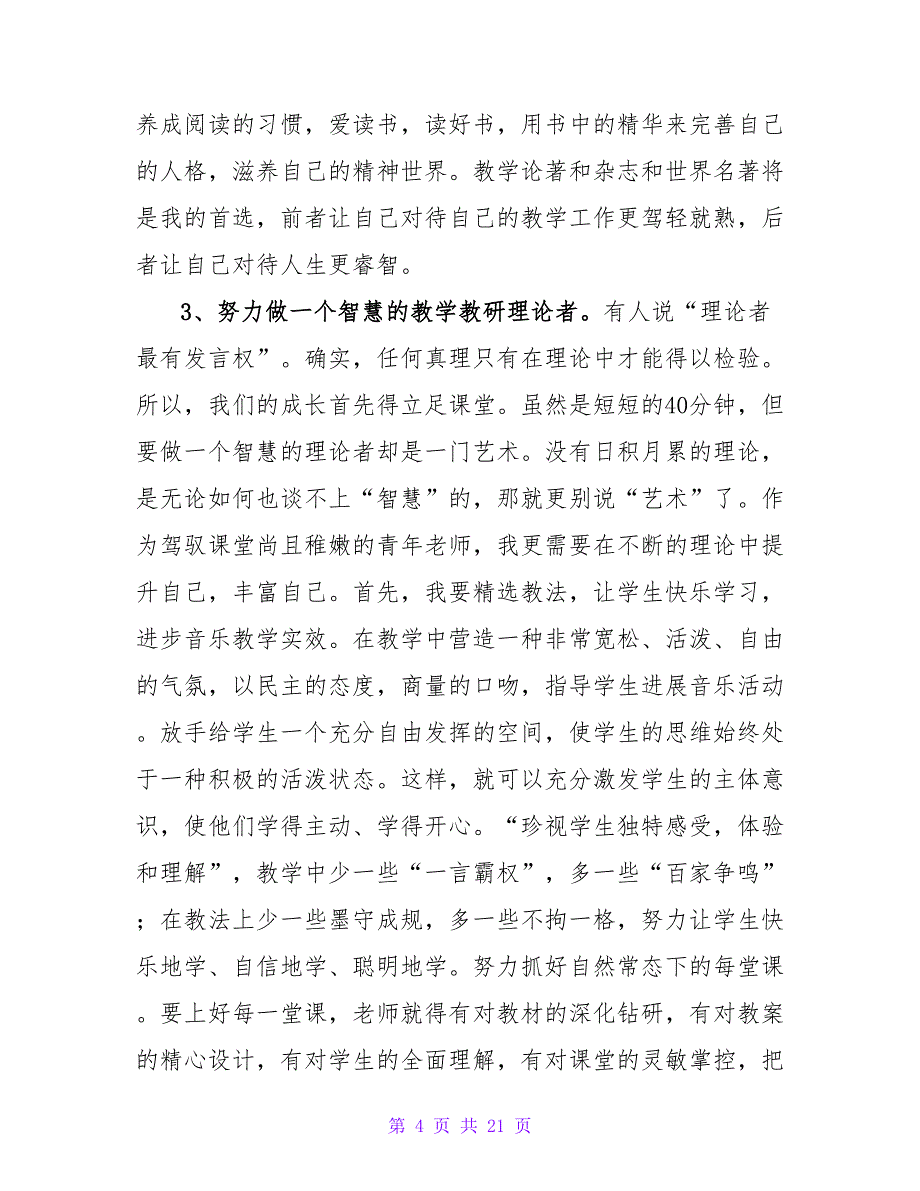 养成阅读的习惯，爱读书，读好书，用书中的精华来完善自己
的人格，滋养自己的精神世界。教学论著和杂志和世界名著将
是我的首选，前者让自己对待自己的教学工作更驾轻就熟，后
者让自己对待人生更睿智。
3、努力做一个智慧的教学教研理论者。有人说“理论者
最有发言权”。确实，任何真理只有在理论中才能得以检验。
所以，我们的成长首先得立足课堂。虽然是短短的40分钟，但
要做一个智慧的理论者却是一门艺术。没有日积月累的理论，
是无论如何也谈不上“智慧”的，那就更别说“艺术”了。作
为驾驭课堂尚且稚嫩的青年老师，我更需要在不断的理论中提
升自己，丰富自己。首先，我要精选教法，让学生快乐学习，
进步音乐教学实效。在教学中营造一种非常宽松、活泼、自由
的气氛，以民主的态度，商量的口吻，指导学生进展音乐活动
。放手给学生一个充分自由发挥的空间，使学生的思维始终处
于一种积极的活泼状态。这样，就可以充分激发学生的主体意
识，使他们学得主动、学得开心。“珍视学生独特感受，体验
和理解”，教学中少一些“一言霸权”，多一些“百家争鸣”
；在教法上少一些墨守成规，多一些不拘一格，努力让学生快
乐地学、自信地学、聪明地学。努力抓好自然常态下的每堂课
。要上好每一堂课，老师就得有对教材的深化钻研，有对教案
的精心设计，有对学生的全面理解，有对课堂的灵敏掌控，把
第 4 页 共 21 页